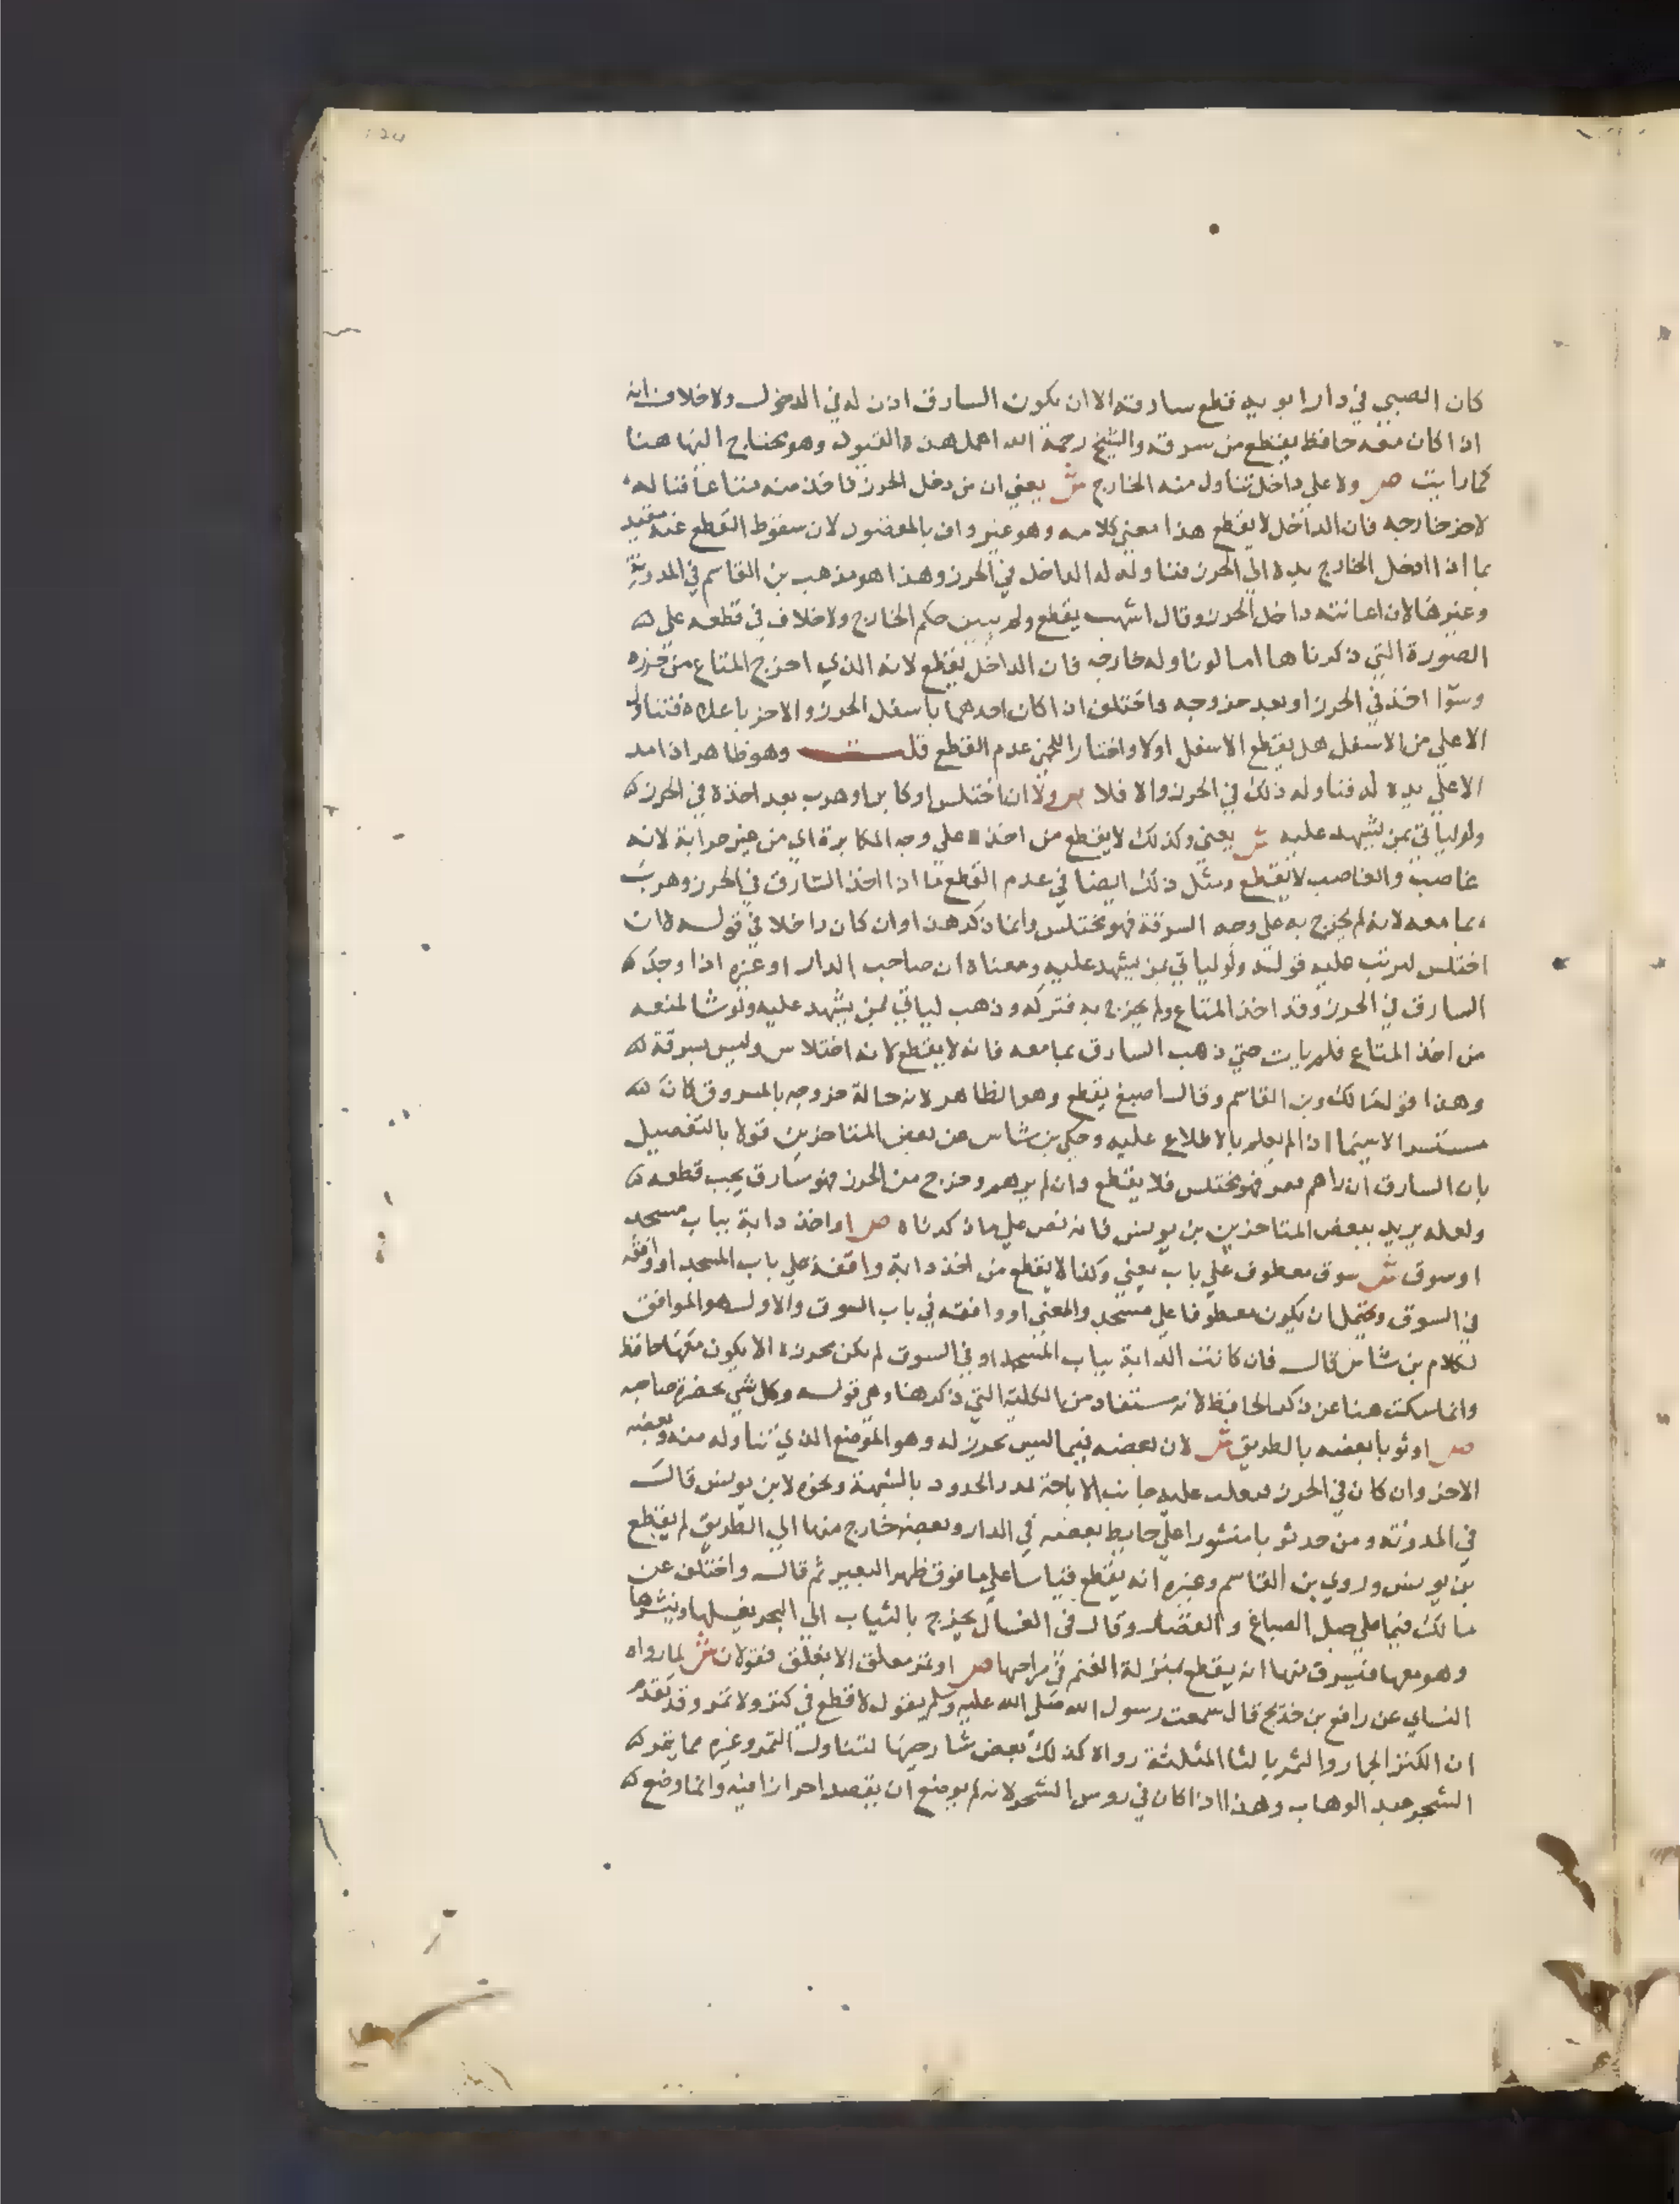 كان الصبي في دار ابويه قطع سارقه الا ان يكون السارق اذن له في الدخول ولا خلاف انه
اذا كان معه حافظ يقطع من سرقه والشيخ رحمة الله اهمل هذه القيود وهو محتاج اليها هنا
كما رايت ص ولا علي داخل تناول منه الخارج ش يعني ان من دخل الحرز فاخذ منه متاعا فناله
لاخر خارجه فان الداخل لا يقطع هذا معني كلامه وهو غير واف بالمقصود لان سقوط القطع عنه مقيد
بما اذا ادخل الخارج يده الي الحرز فتناوله له الداخل في الحرز وهذا هو مذهب بن القاسم في المدونة
وغيرها لان اعانته داخل الحرز وقال اشهب يقطع ولم يبين حكم الخارج ولا خلاف في قطعه علي
الصورة التي ذكرناها اما لو ناوله خارجه فان الداخل يقطع لانه الذي اخرج المتاع من حرزه
وسوا اخذ في الحرز او بعد خروجه واختلف اذا كان احدهما باسفل الحرز والاخر باعلاه فتناول
الاعلي من الاسفل هل يقطع الاسفل اولا واختار اللخمي عدم القطع قلت وهو ظاهر اذا مد
الاعلي يده له فناوله ذلك في الحرز والا فلا ص ولا ان اختلس او كابر او هرب بعد اخذه في الحرز
ولو لياتي بمن يشهد عليه ش يعني وكذلك لا يقطع من اخذ علي وجه المكابرة اي من غير حرابة لانه
غاصب والغاصب لا يقطع ومثل ذلك ايضا في عدم القطع ما اذا اخذ السارق في الحرز وهرب
بما معه لانه لم يخرج به علي وجه السرقة فهو مختلس وانما ذكر هذا وان كان داخلا في قوله ان
اختلس ليرتب عليه قوله ولو لياتي بمن يشهد عليه ومعناه ان صاحب الدار او غيره اذا وجد
السارق في الحرز وقد اخذ المتاع ولم يخرج به فتركه وذهب لياتي بمن يشهد عليه ولو شا لمنعه
من اخذ المتاع فلم يات حتي ذهب السارق بما معه فانه لا يقطع لانه اختلاس وليس بسرقة
وهذا قول مالك وبن القاسم وقال اصبغ يقطع وهو الظاهر لانه حالة خروجه بالمسروق كان
مستسرا لاسيما اذا لم يعلم بالاطلاع عليه وحكي بن شاس عن بعض المتاخرين قولا بالتفصيل
بان السارق ان راهم فهو مختلس فلا يقطع وان لم يرهم وخرج من الحرز فهو سارق يجب قطعه
ولعله يريد ببعض المتاخرين بن يونس فانه نص علي ما ذكرناه ص او اخذ دابة بباب مسجد
او سوق ش سوق معطوف علي باب يعني وكذا لا يقطع من اخذ دابة واقفة علي باب المسجد او واقفة
في السوق ويحتمل ان يكون معطوفا علي مسجد والمعني او واقفة في باب السوق والاول هو الموافق
لكلام بن شاس قال فان كانت الدابة بباب المسجد او في السوق لم يكن محرزه الا يكون معها حافظ
وانما سكت هنا عن ذكر الحافظ لانه مستفاد من الكلية التي ذكرها وهي قوله وكل شي بحضرة صاحبه
ص او ثوبا بعضه بالطريق ش لان بعضه فيما ليس بحرز له وهو الموضع الذي تناوله منه وبعضه
الاخر وان كان في الحرز فيغلب عليه جانب الاباحة لدر الحدود بالشبهة ونحوه لابن يونس قال
في المدونه ومن جر ثوبا منشورا علي حايط بعضه في الدار وبعضه خارج منها الي الطريق لم يقطع
بن يونس وروي بن القاسم وغيره انه يقطع قياسا علي ما فوق ظهر البعير ثم قال واختلف عن
مالك فيما علي حبل الصباغ والقصار وقال في الغسال يخرج بالثياب الي البحر يغسلها وينشرها
وهو معها فيسرق منها انه يقطع بمنزلة الغنم في مراحها ص او ثمر معلق الا بغلق فقولان ش لما رواه
النساي عن رافع بن خديج قال سمعت رسول الله صلي الله عليه وسلم يقول لا قطع في كثر ولا ثمر وقد تقدم
ان الكثر الجمار والثمر بالثا المثلثة رواه كذلك بعض شارحيها لتناول التمر وغيره مما يثمر
الشجر عبد الوهاب وهذا اذا كان في روس الشجر لانه لم يوضع ان يقصد احرازا فيه وانما وضع